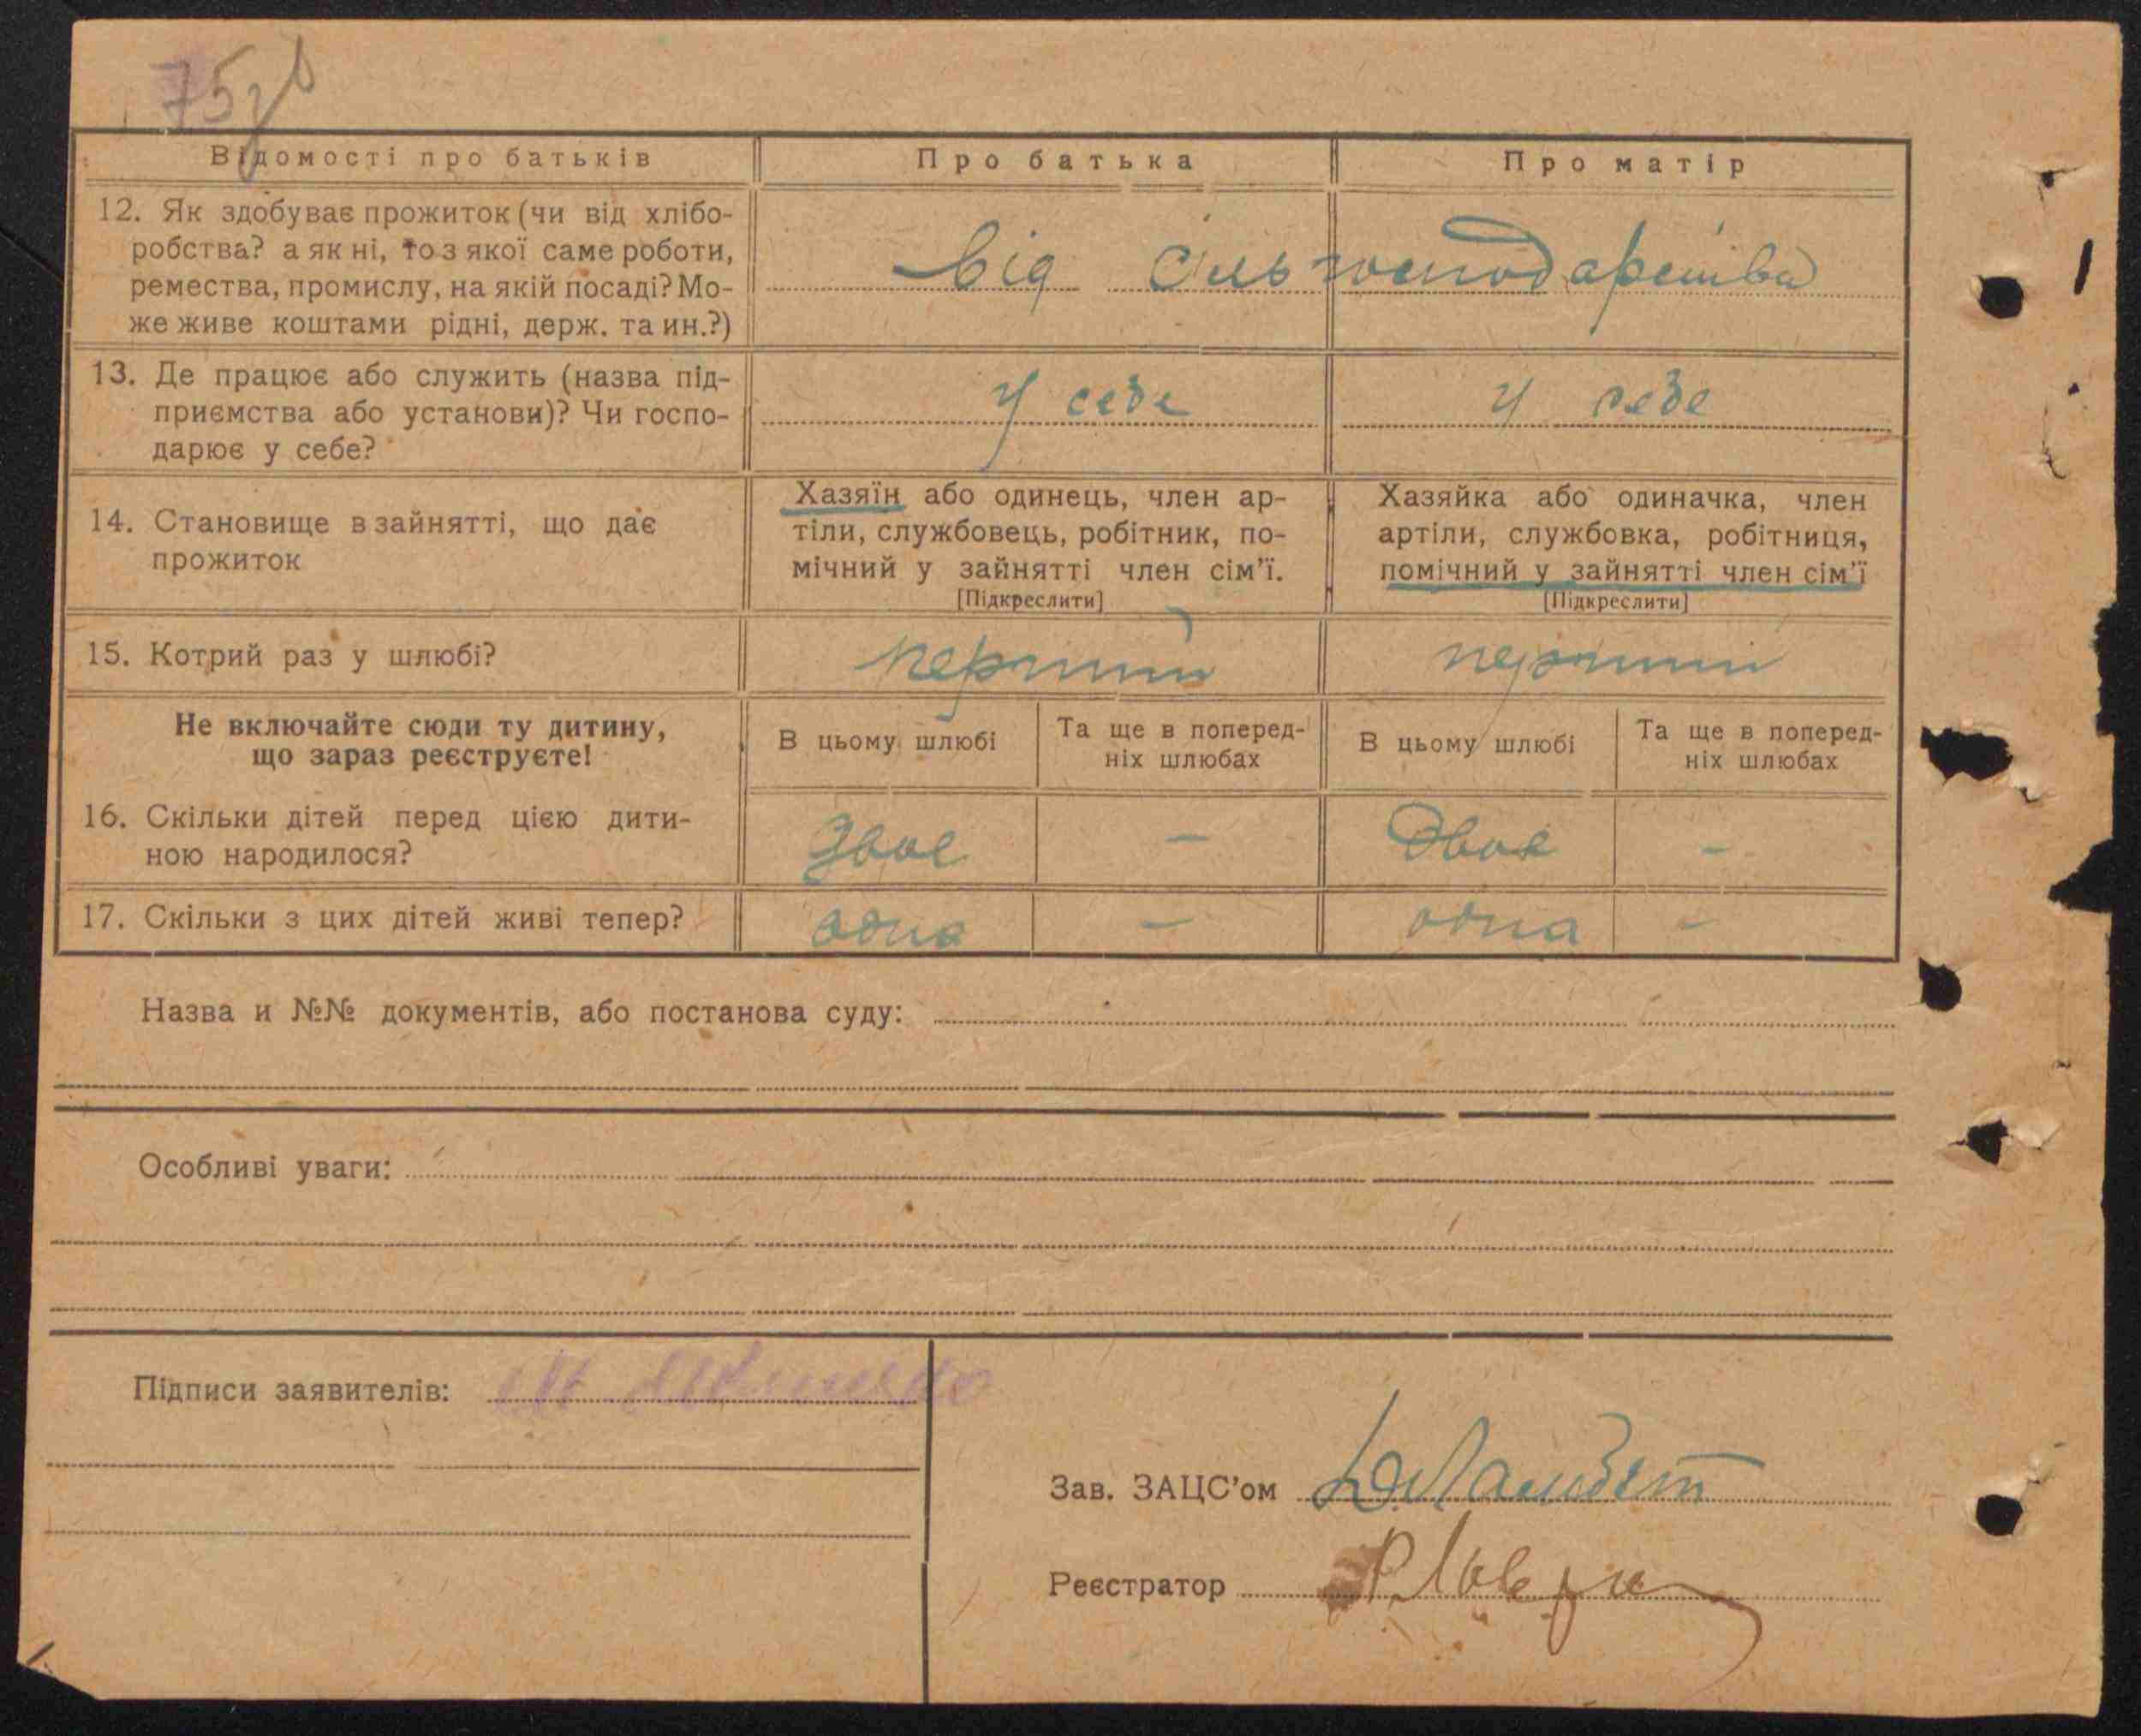 75зв
Відомості про батьків
Про батька
Про матір
12. Як здобуває прожиток (чи від хлібо-
робства? а як ні, то з якої саме роботи,
ремества, промислу, на якій посаді? Мо-
же живе коштами рідні, держ. та ин.?)
від сільгосподарства
13. Де працює або служить (назва під-
приємства або установи)? Чи госпо-
дарює у себе?
У себе
У себе
14. Становище в зайнятті, що дає
прожиток
Хазяїн або одинець, член ар-
тіли, службовець, робітник, по-
мічний у зайнятті член сім'ї.
[Підкреслити]
Хазяйка або одиначка, член
артіли, службовка, робітниця,
помічний у зайнятті член сім'ї
[Підкреслити]
15. Котрий раз у шлюбі?
перший
перший
Не включайте сюди ту дитину,
що зараз реєструєте!
В цьому шлюбі
Та ще в поперед-
ніх шлюбах
В цьому шлюбі
Та ще в поперед-
ніх шлюбах
16. Скільки дітей перед цією дити-
ною народилося?
двое
–
Двое
–
17. Скільки з цих дітей живі тепер?
одна
–
одна
–
Назва и №№ документів, або постанова суду:
Особливі уваги:
Підписи заявителів:
Зав. ЗАЦС'ом
Реєстратор